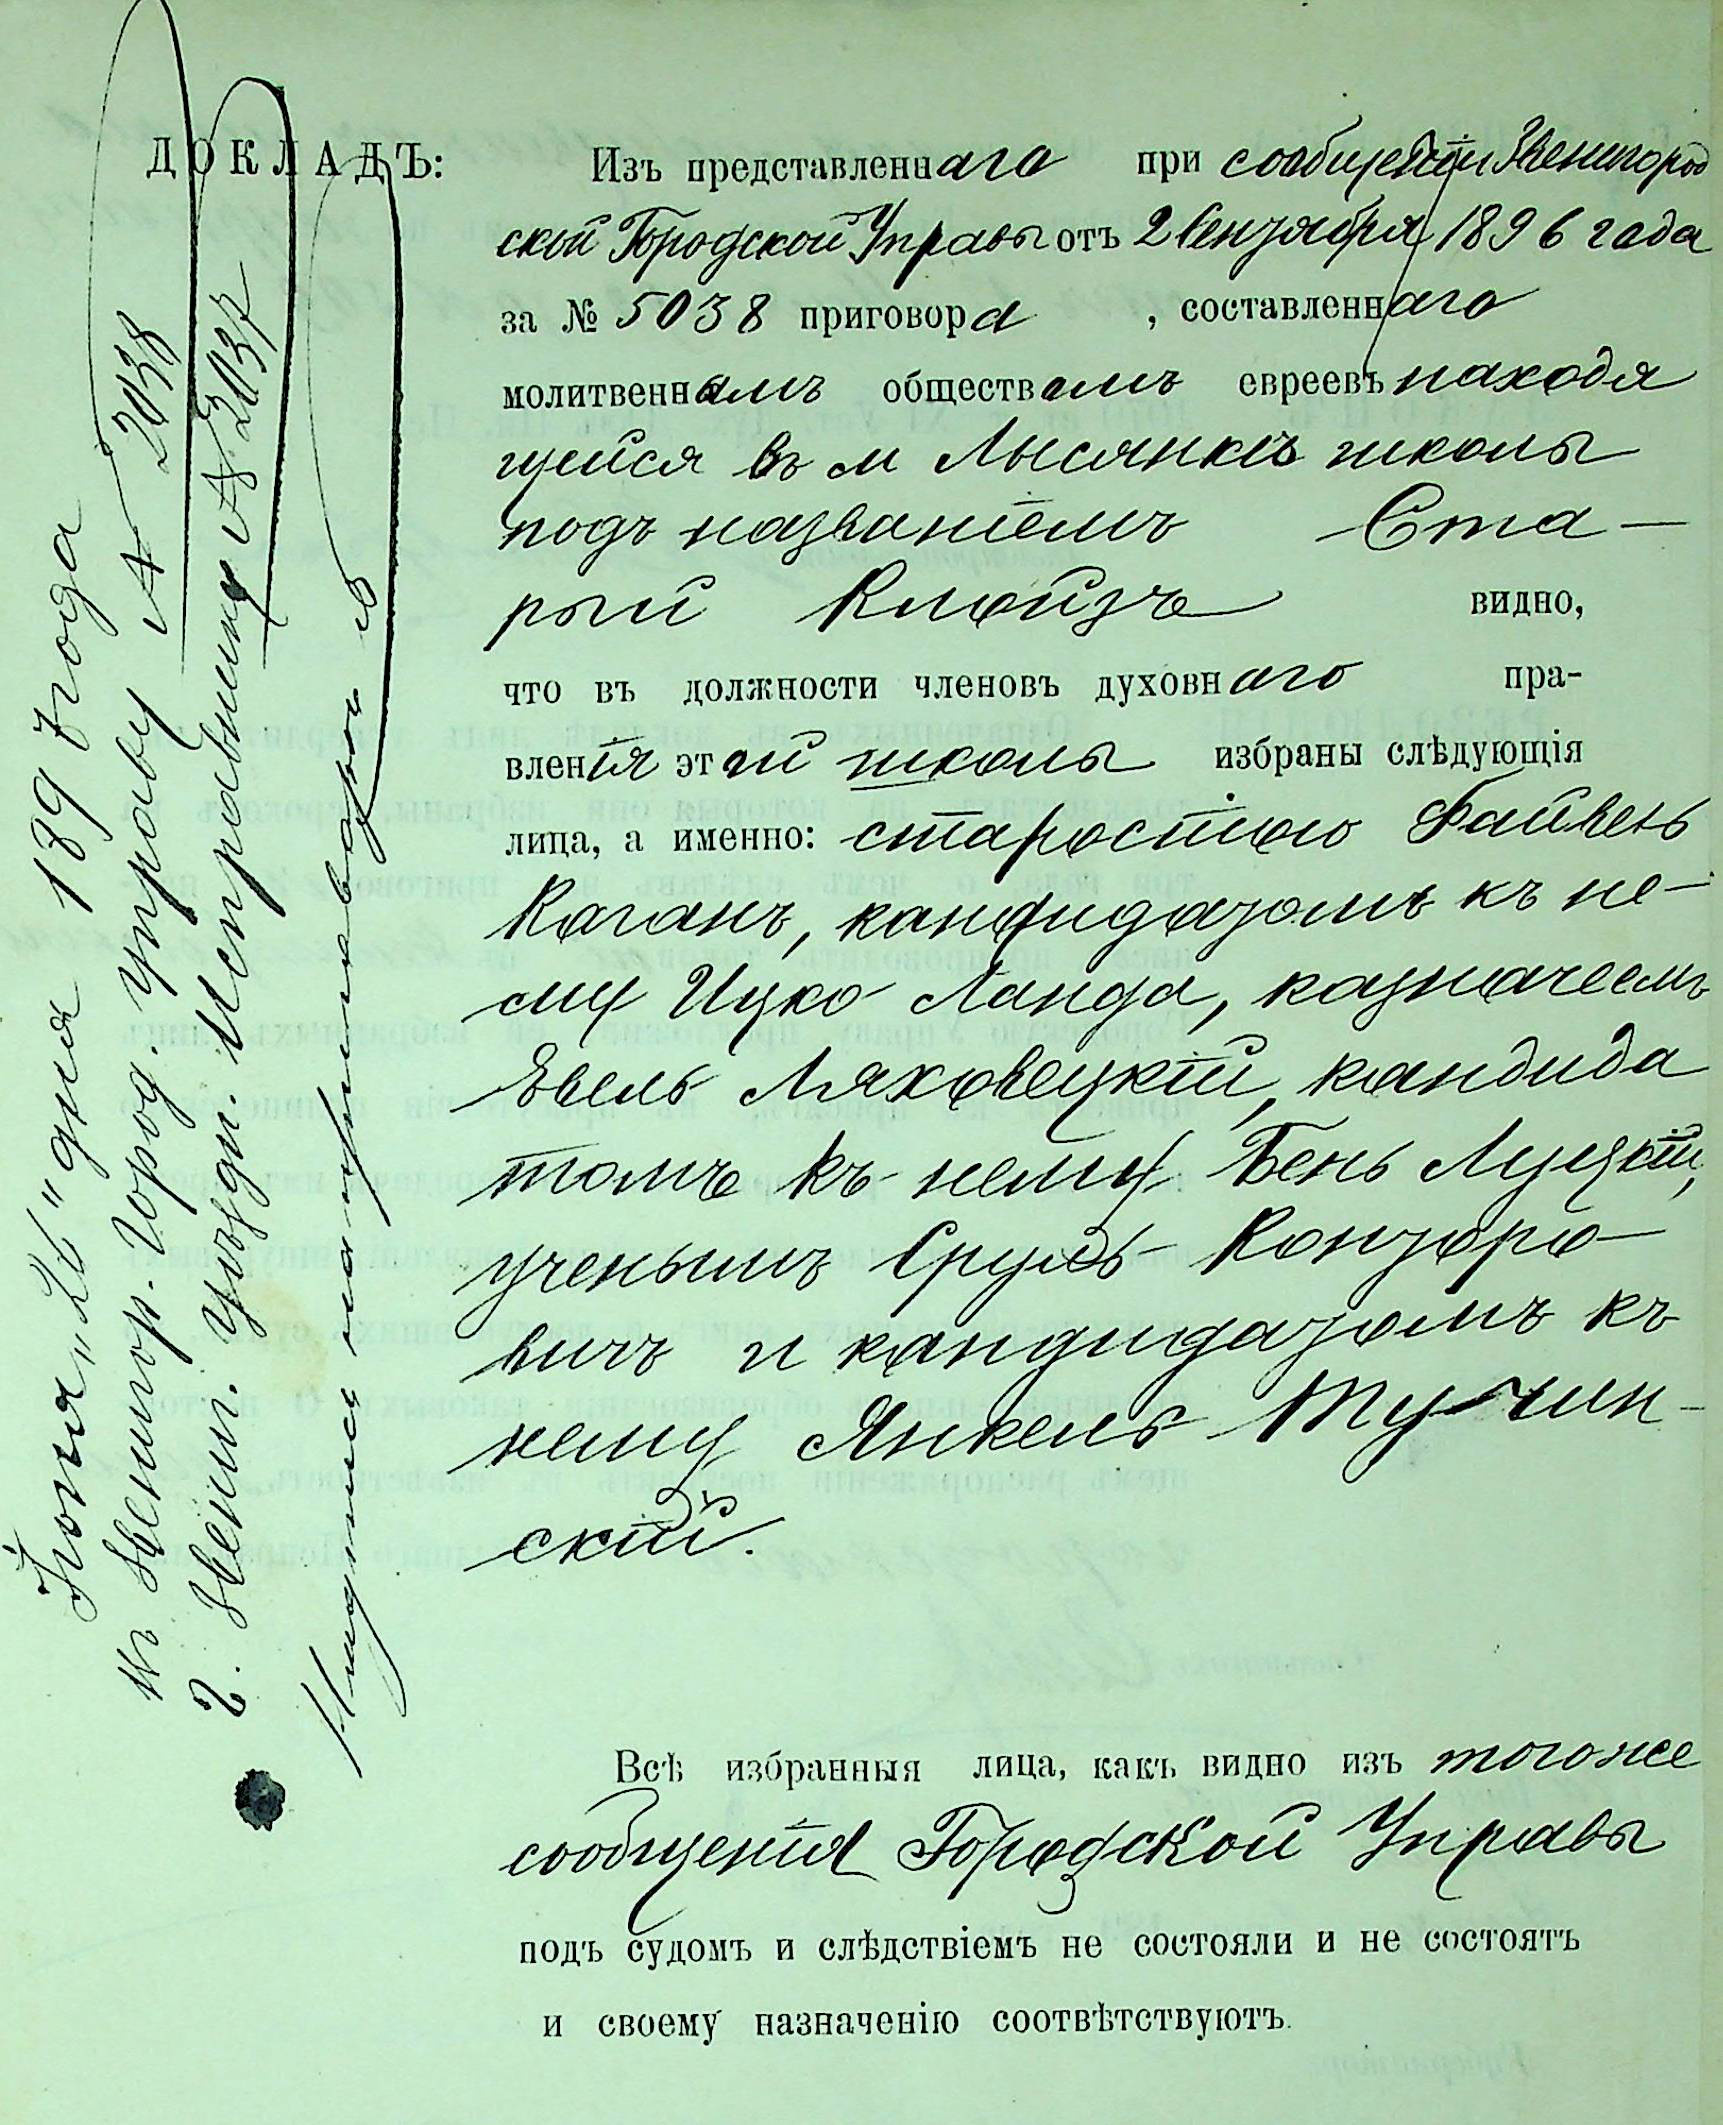 ДОКЛАДЪ:
Изъ представленнаго при сообщеніи Звенигород
ской Городской Управы отъ 2 Сентября 1896 года
за № 5038 приговора , составленнаго
молитвеннымъ обществомъ евреевъ находя
щейся въ м Лысянкѣ школы
подъ названіемъ Ста-
рый Клойзъ видно,
что въ должности членовъ духовнаго пра-
вленія этой школы избраны слѣдующія
лица, а именно: старостою Файвель
Каганъ, кандидатомъ къ не-
му Ицко Ланда, казначеемъ
Евель Ляховецкій, кандида
томъ къ нему Бень Луцкій,
ученымъ Сруль Конторо-
вичъ и кандидатомъ къ
нему Янкель Тучин-
скій.
Всѣ избранныя лица, какъ видно изъ тогоже
сообщенія Городской Управы
подъ судомъ и слѣдствіемъ не состояли и не состоятъ
и своему назначенію соотвѣтствуютъ.
Іюня „26" дня 1897 года
въ Звенигор. Город. управу № 2038
г. Звениг. Уѣздн. Исправнику № 2037